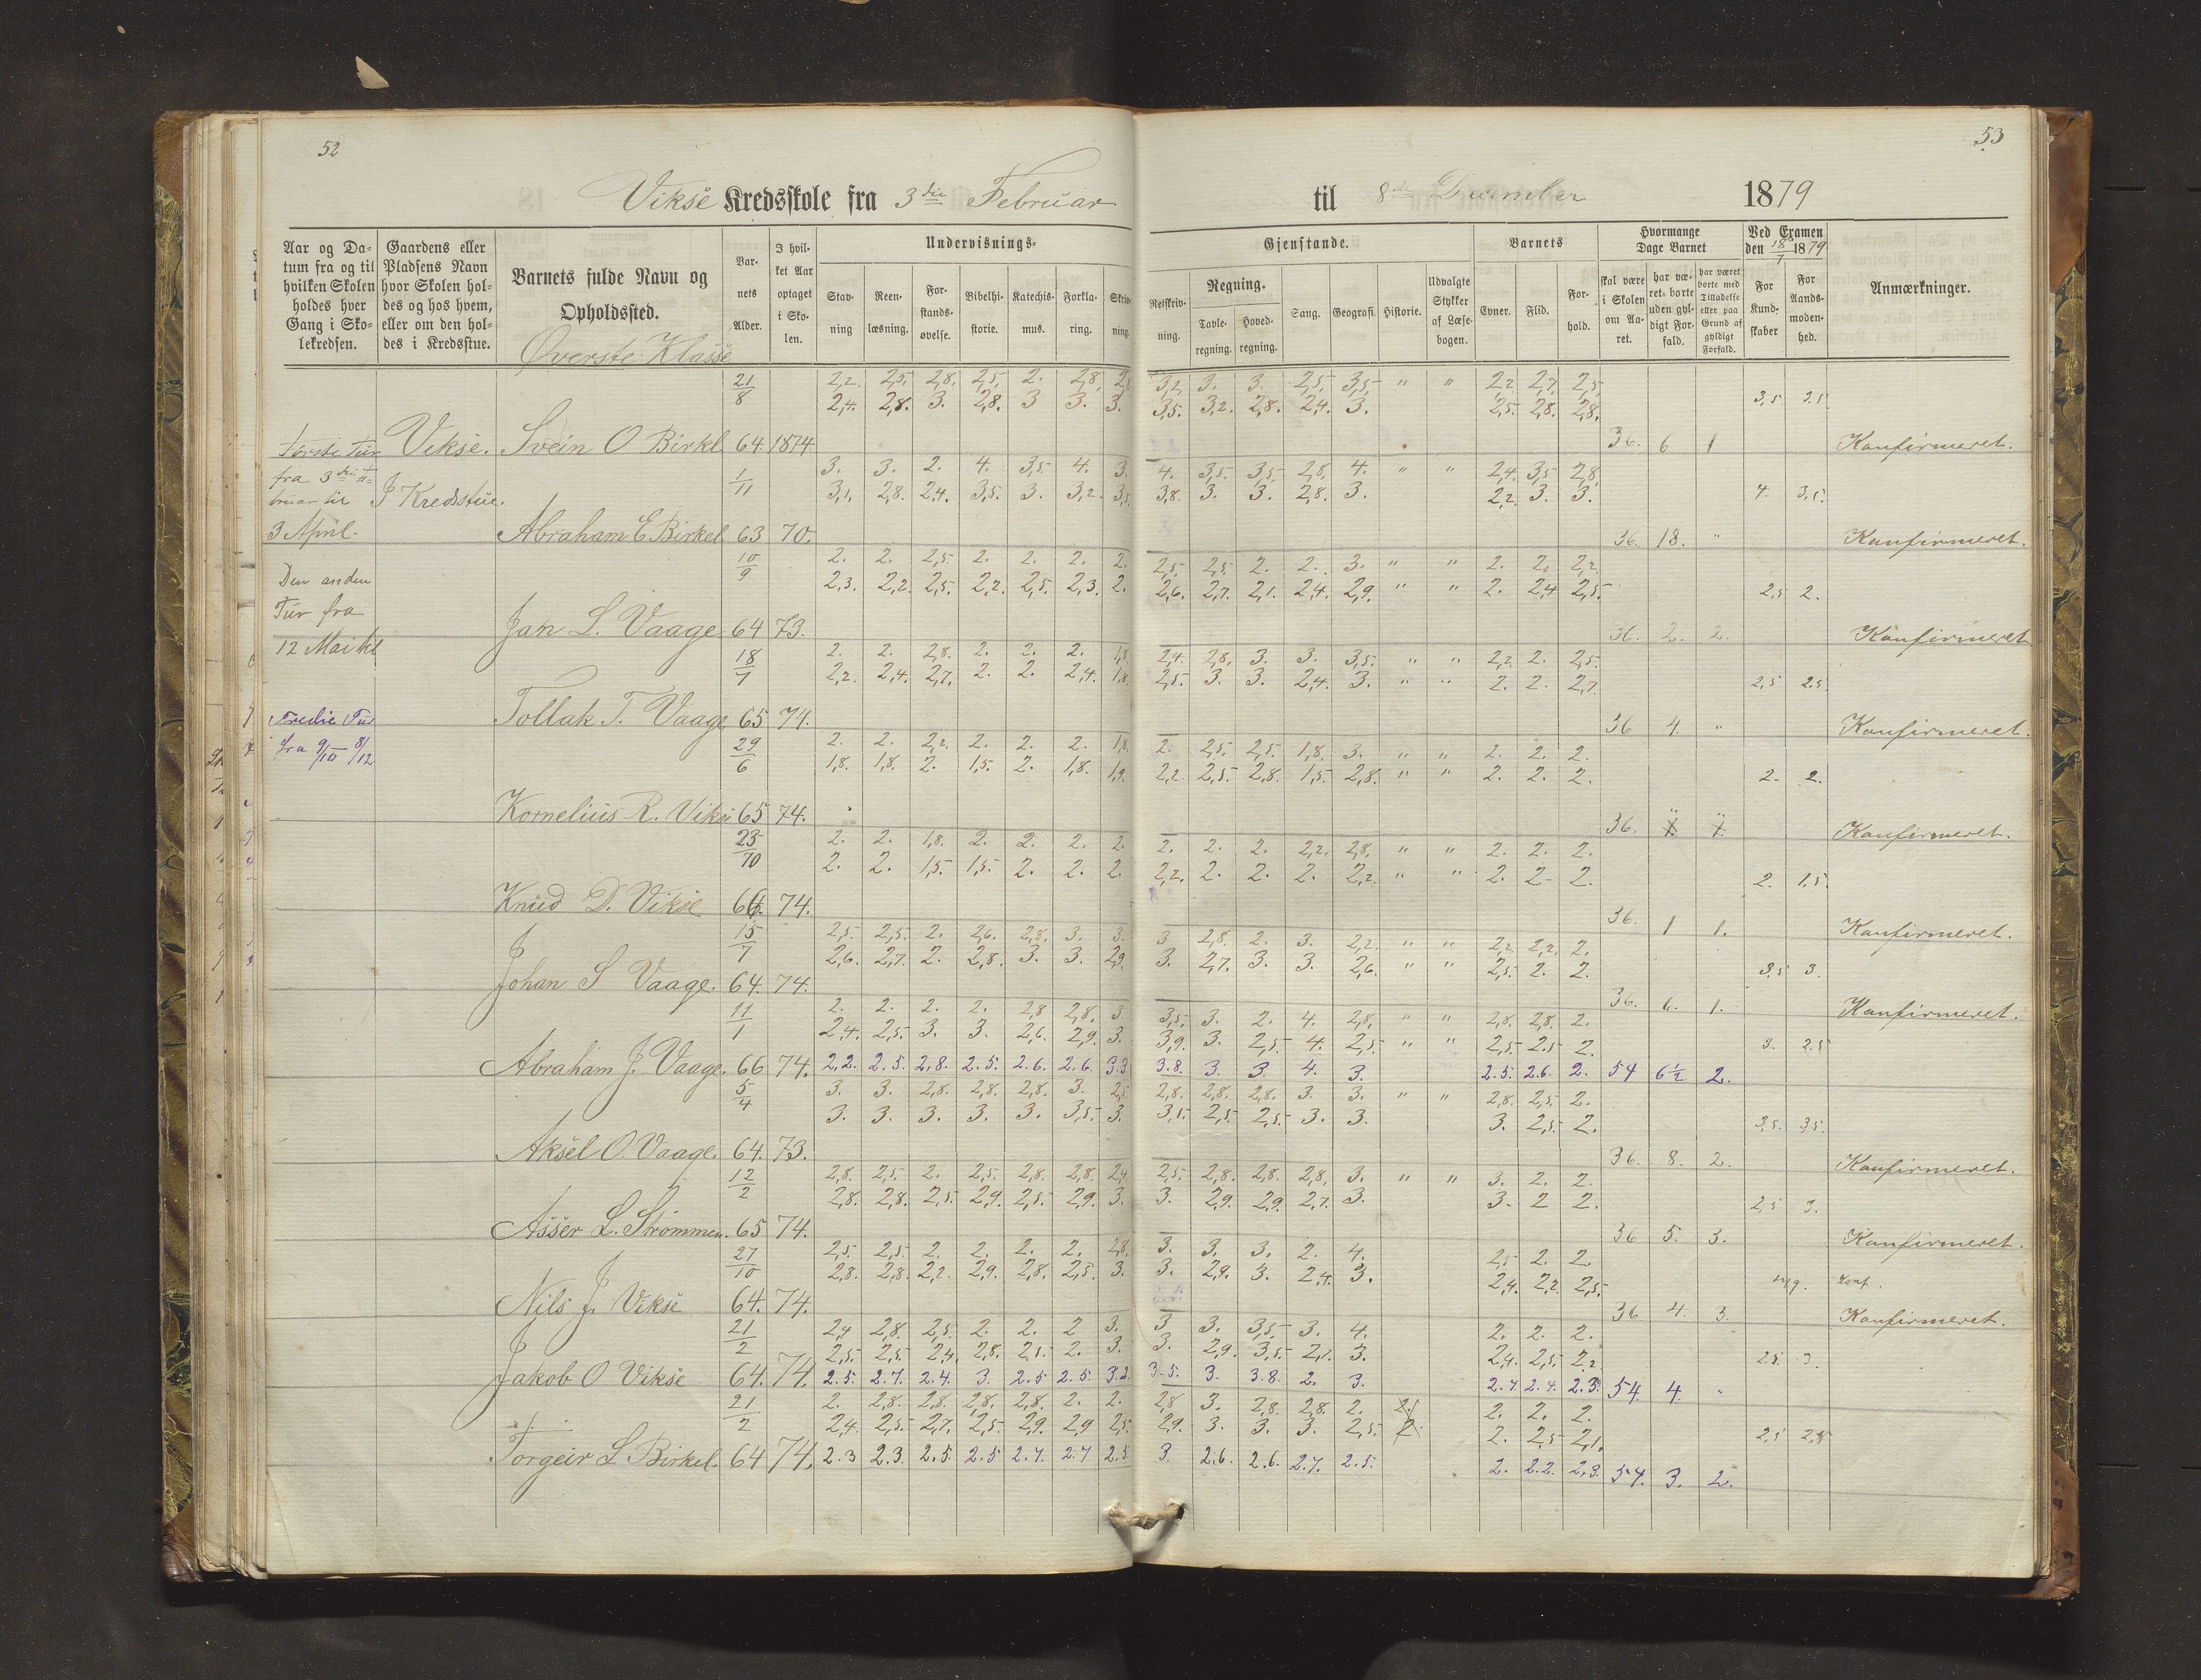 52
53
Vikse Kredsskole fra 3die Februar til 8de December 1879
Aar og Datum fra og til hvilken Skolen holdes hver Gang i Skolekredsen.
Gaardens eller Pladsens Navn hvor Skolen holdes og hos hvem, eller om den holdes i Kredsstue.
Barnets fulde Navn og Opholdssted.
Barnets Alder.
I hvilket Aar optaget i Skolen.
Undervisnings-
Stavning
Reenlæsning.
Forstandsøvelse.
Bibelhistorie.
Katechismus.
Forklaring.
Skrivning.
Gjenstande.
Retskrivning.
Regning.
Tavleregning.
Hovedregning.
Sang.
Geografi.
Historie.
Udvalgte Stykker af Læsebogen.
Barnets
Evner.
Flid.
Forhold.
Hvormange Dage Barnet
skal være i Skolen om Aaret.
har været borte uden gyldigt Forfald.
har været borte med Tilladelse eller paa Grund af gyldigt Forfald.
Ved Examen den 18/7 1879
For Kundskaber
For Aandsmodenhed.
Anmærkninger.
Øverste Klasse
21/8 2,2. 2,5. 2,8. 2,5. 2. 2,8. 3,2. 3. 3. 2,5. 3,5. " " 2,2 2,7 2,5
2,4. 2,8. 3. 2,8. 3 3. 3. 3,5. 3,2. 2,8. 2,4. 3. 2,5. 2,8. 2,8. 3,5. 3.5
Første Tur Vikse. Svein O Birkel 64. 1874. 36. 6 1 Konfirmeret.
fra 3die Februar til I Kredsstue.
1/11 3. 3. 2. 4. 3,5. 4. 3. 4. 3,5. 3,5. 2,8. 4. " " 2,4. 3,5 2,8.
3,1. 2,8. 2,4. 3,5. 3. 3,2. 3,5 3,8. 3. 3. 2,8. 3. 2,2. 3. 3. 4. 3,5.
3 April. Abraham E Birkel 63 70. 36. 18. " Konfirmeret.
10/9 2. 2. 2,5. 2. 2. 2. 2. 2,5. 2,5. 2. 2. 3. " " 2. 2. 2,2
Den anden 2,3. 2,2. 2,5. 2,2. 2,5. 2,3. 2. 2,6. 2,7. 2,1. 2,4. 2,9. " " 2. 2,4 2,5. 2,5 2.
Tur fra
Jan L. Vaage. 64 73. 36. 2. 2. Konfirmeret
12 Mai til
18/7 2. 2. 2,8. 2. 2. 2. 1,8. 2,4. 2,8. 3. 3. 3,5. " " 2,2. 2. 2,5.
2,2. 2,4. 2,7. 2. 2. 2,4. 1,8. 2,5. 3. 3. 2,4. 3. " " 2. 2. 2,7. 2,5 2.5
Tredie Tur Tollak T. Vaage 65 74. 36 4. " Konfirmeret.
fra 9/10 8/12
29/6 2. 2. 2,2. 2. 2. 2. 1,8. 2. 2,5. 2,5. 1,8. 3. " " 2. 2. 2.
1,8. 1,8. 2. 1,5. 2. 1,8. 1,9. 2,2. 2,5. 2,8. 1,5. 2,8. " " 2. 2. 2. 2. 2.
Kornelius R. Vikse 65 74. 36. " " Konfirmeret.
23/10 2. 2. 1,8. 2. 2. 2. 2. 2. 2. 2. 2,2. 2,8. " " 2. 2. 2.
2. 2. 1,5. 1,5. 2. 2. 2. 2,2. 2. 2. 2. 2,2. " " 2. 2. 2. 2. 1.5
Knud D. Vikse 64. 74. 36. 1 1. Konfirmeret.
15/7 2,5. 2,5. 2. 2,6. 2,8. 3. 3. 3 2,8. 2. 3. 2,2. " " 2,2. 2,2. 2.
2,6. 2,7. 2. 2,8. 3. 3. 2,9. 3. 2,7. 3. 3. 2,6. " " 2,5. 2. 2. 3,5 3.
Johan S Vaage. 64. 74. 36. 6. 1. Konfirmeret.
11/1 2. 2. 2. 2. 2,8 2,8. 3. 3,5. 3. 2. 4. 2,8. " " 2,8. 2,8. 2.
2,4. 2,5. 3. 3. 2,6. 2,9. 3. 3,9. 3. 2,5. 4. 2,5. " " 2,5. 2.5 2. 3. 2.5
Abraham J. Vaage. 66 74. 2.2. 2.5. 2.8. 2.5. 2.6. 2.6. 3.3. 3.8. 3. 3. 4. 3. 2.5. 2.6. 2. 54 6½ 2.
5/4 3. 3. 2,8. 2,8. 2,8. 3. 2,5. 2,8. 2,8. 2,8. 3. 3. " " 2,8. 2,5. 2.
3. 3. 3. 3. 3. 3,5. 3. 3,5. 2,5. 2,5. 3. 3. 3. 2,5. 2. 3,5. 3,5.
Aksel O. Vaage. 64. 73. 36. 8. 2. Konfirmeret.
12/2 2,8. 2,5. 2. 2,5. 2,8. 2,8. 2,4. 2,5. 2,8. 2,8. 2,8. 3. " " 3. 2. 2.
2,8. 2,8. 2,5. 2,9. 2,5. 2,9. 3. 3. 2,9. 2,9. 2,7. 3. 3. 2 2. 2,5 3.
Asser L. Strømmen. 65 74. 36 5. 3. Konfirmeret.
27/10 2,5. 2,5. 2. 2. 2. 2. 2,8. 3. 3. 3. 2. 4. 2,5 2. 2.
2,8. 2,8. 2,2. 2,9. 2,8. 2,5. 3. 3. 2,9. 3. 2,4. 3. 2,4. 2,2. 2,5. Konf.
Nils J. Vikse 64. 74. 36 4. 3. Konfirmeret.
21/2 2,4 2,8. 2,5. 2. 2. 2 3. 3 3. 3,5. 3. 4. 2. 2. 2.
2,5. 2,5. 2,4. 2,8. 2,5. 2. 3. 3. 2,9. 3,5. 2,7. 3. 2,4. 2,5. 2,2. 2.5. 3.
Jakob O Vikse 64. 74. 2.5. 2.7. 2.4. 3. 2.5 2.5. 3.2. 3.5. 3. 3.8. 2. 3. 2.4. 2.4. 2.3. 54. 4. "
21/2 2. 2,8. 2,8. 2,8. 2,8. 2. 2. 2,8 3. 2,8. 2,8. 2. 2. 2. 2.
2,4. 2,5. 2,7. 2,5. 2,9. 2,9 2,5. 2,9. 3. 3. 3. 2,5. 2. 2,5 2,1. 2,5 2,8
Torgeir L. Birkel. 64 74. 2.3 2.3. 2.5 2.5 2.7. 2.7 2.5 3. 2.6. 2.6. 2.7. 2.5. 2. 2.2. 2.3. 54. 3. 2.